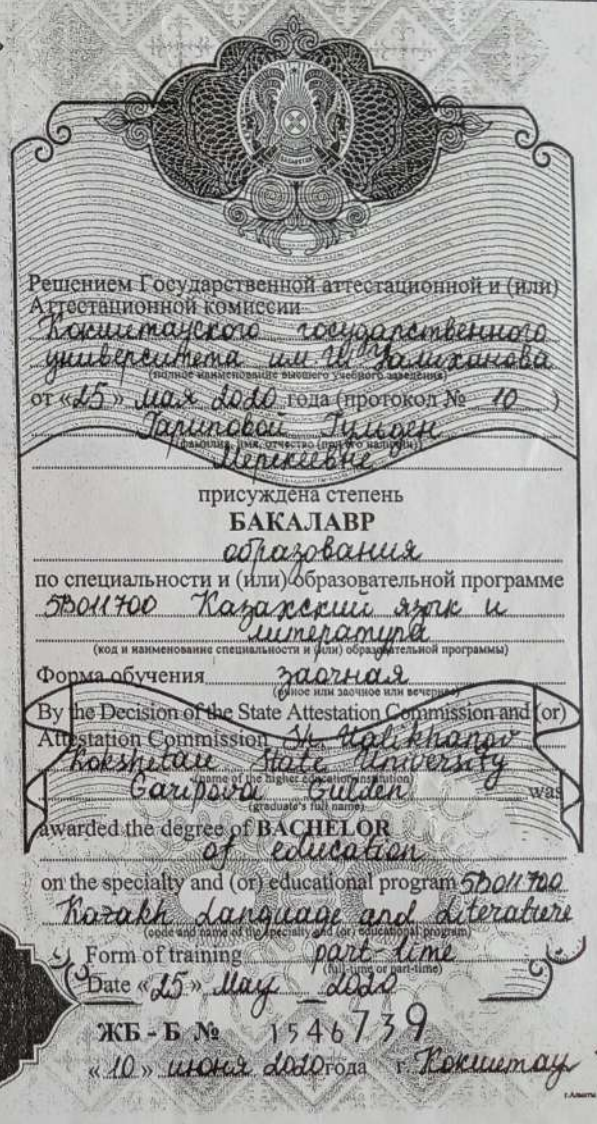 ҚАЗАҚСТАН
Решением Государственной аттестационной и (или)
Аттестационной комиссии
Кокшетауского государственного
университета им. Ш. Уалиханова
(полное наименование высшего учебного заведения)
от «25» мая 2020 года (протокол № 10 )
Гариповой Гульден
(фамилия, имя, отчество (при его наличии))
Мерекеевне
присуждена степень
БАКАЛАВР
образования
по специальности и (или) образовательной программе
5В011700 Казахский язык и
литература
(код и наименование специальности и (или) образовательной программы)
Форма обучения заочная
(очное или заочное или вечернее)
By the Decision of the State Attestation Commission and (or)
Attestation Commission Sh. Ualikhanov
Kokshetau State University
(name of the higher education institution)
Garipova Gulden was
(graduate's full name)
awarded the degree of BACHELOR
of education
on the specialty and (or) educational program 5B011700
Kazakh Language and Literature
(code and name of the specialty and (or) educational program)
Form of training part time
(full-time or part-time)
Date «25» May 2020
ЖБ - Б № 1546739
«10» июня 2020 года г. Кокшетау
г.Алматы